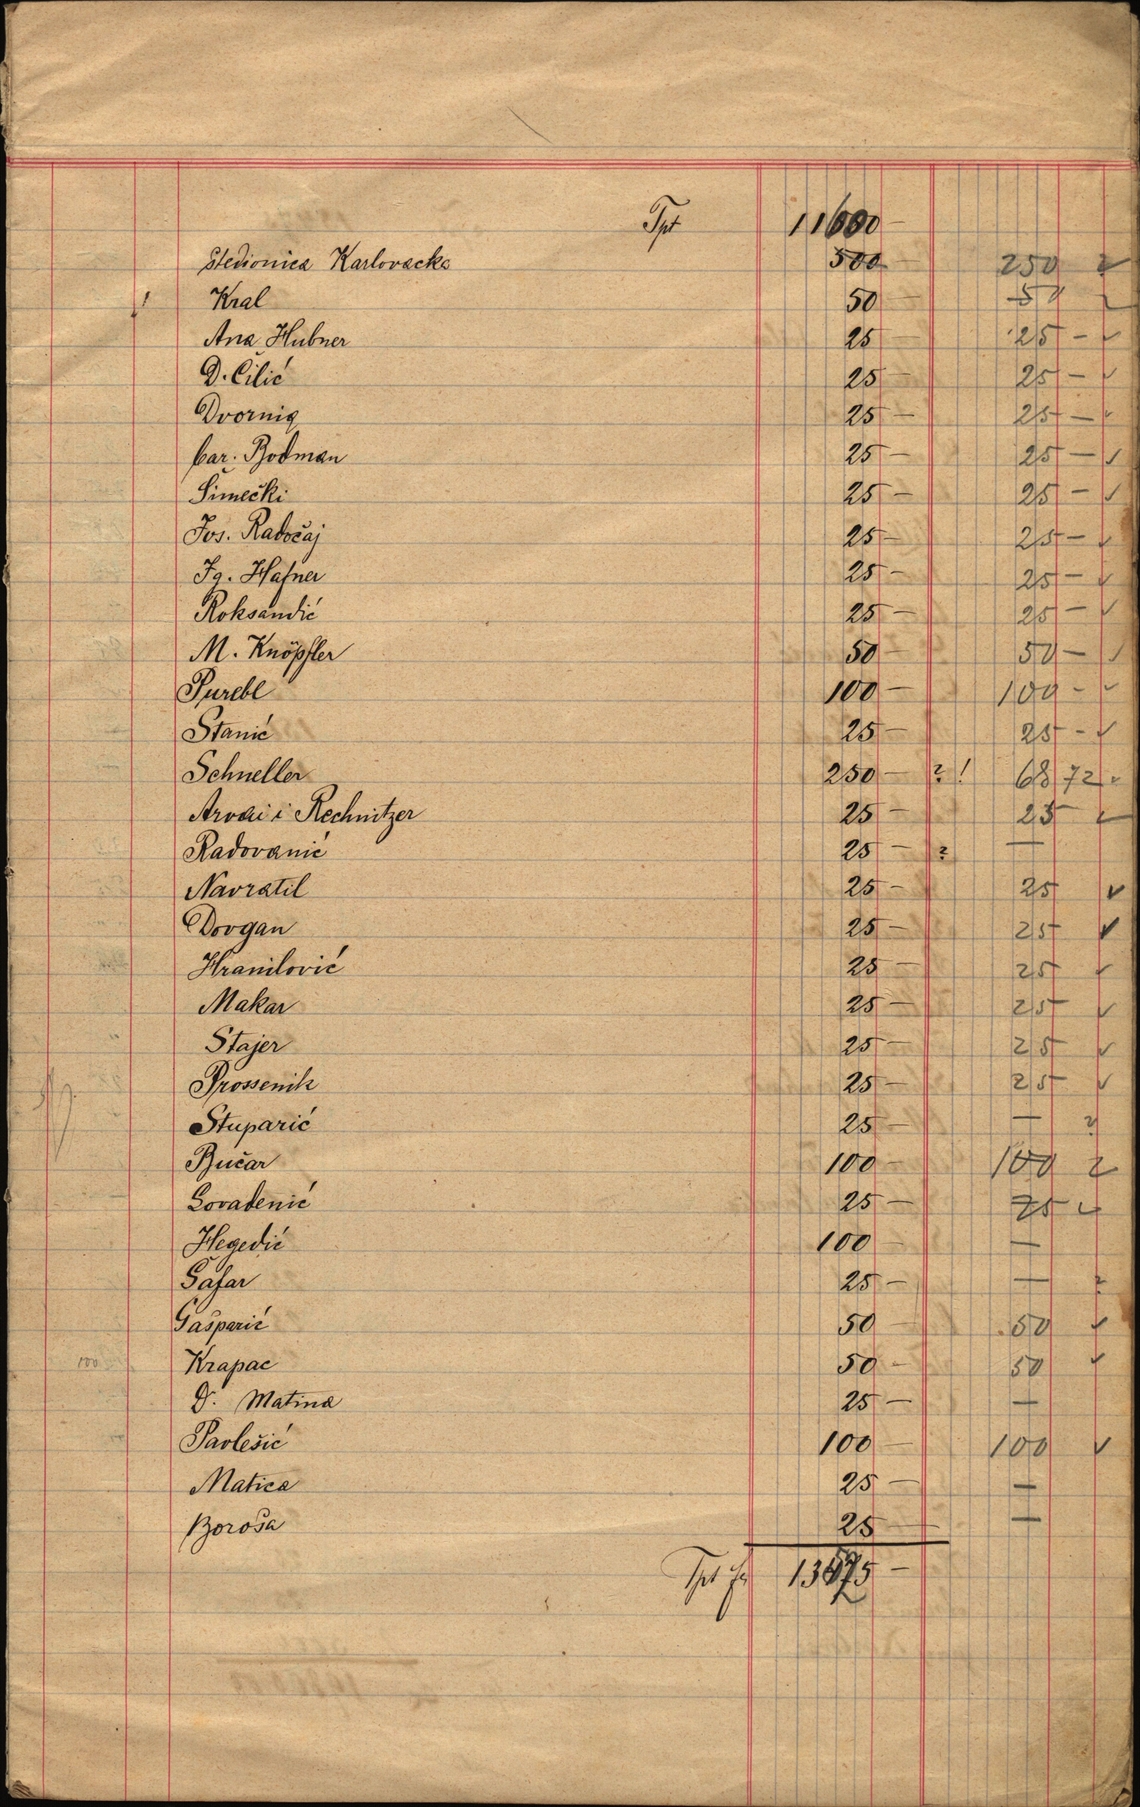 Tpt 11600 —
Štedionica Karlovacka 500 250
! Kral 50 — 50
Ana Hubner 25 — 25 — ✓
D. Čilić 25 — 25 — ✓
Dvornig 25 — 25 — ✓
Car. Bodman 25 — 25 — ✓
Šimečki 25 — 25 — ✓
Jos. Radočaj 25 — 25 — ✓
Ig. Hafner 25 — 25 — ✓
Roksandić 25 — 25 — ✓
M. Knöpfler 50 — 50 — ✓
Purebl 100 — 100 — ✓
Stanić 25 — 25 — ✓
Schneller 250 — ? ! 68 72 ✓
Arvai i Rechnitzer 25 — 25 ✓
Radovanić 25 — ? —
Navratil 25 — 25 ✓
Dovgan 25 — 25 ✓
Hranilović 25 — 25 ✓
Makar 25 — 25 ✓
Stajer 25 — 25 ✓
Prossenik 25 — 25 ✓
Stuparić 25 — — ?
Bučar 100 — 100
Lovadenić 25 — 25 ✓
Hegedić 100 — —
Šafar 25 — — ?
Gašparić 50 — 50 ✓
100 Krapac 50 — 50 ✓
D. Matina 25 — —
Pavlešić 100 — 100 ✓
Matica 25 — —
Boroša 25 — —
Tpt